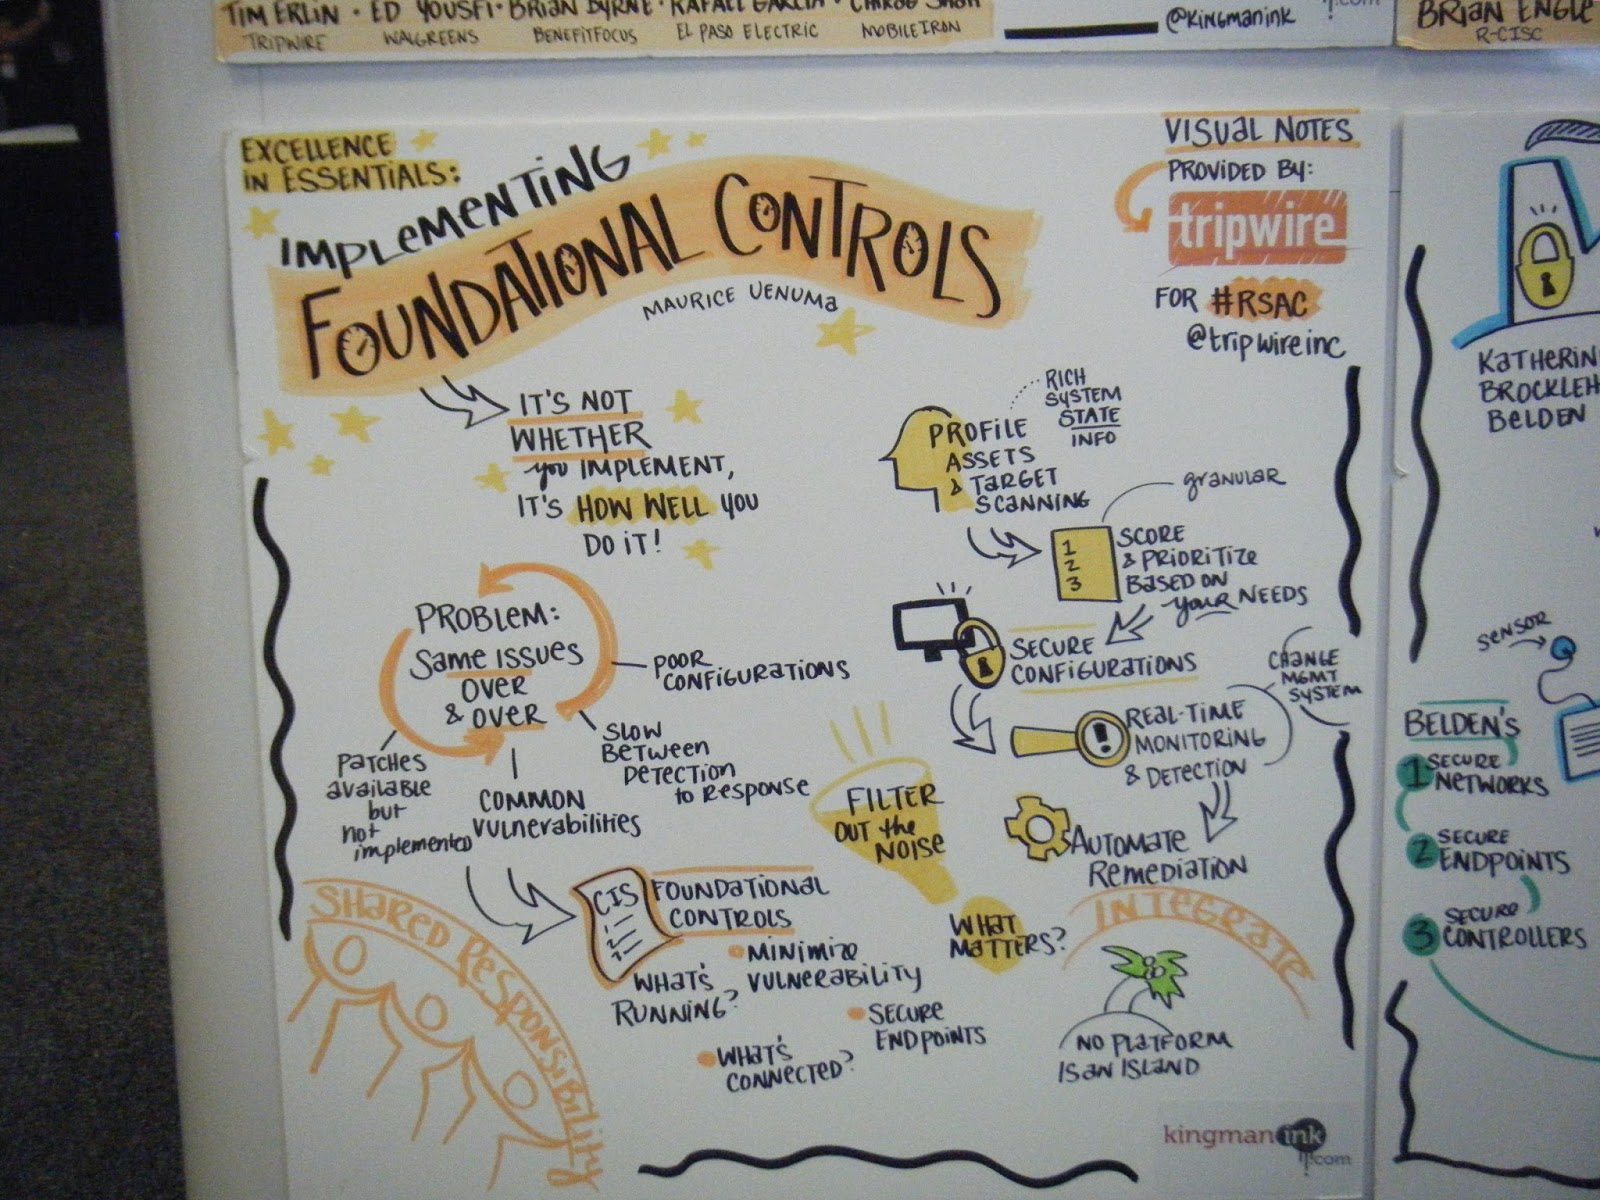 TIM ERLIN • ED YOUSFI • BRIAN BYRNE • RAFAEL GARCIA •
TRIPWIRE WALGREENS BENEFITFOCUS EL PASO ELECTRIC MOBILEIRON
@KINGMANINK
BRIAN ENGLE
R-CISC
EXCELLENCE
IN ESSENTIALS:
IMPLEMENTING
FOUNDATIONAL CONTROLS
MAURICE UENUMA
VISUAL NOTES
PROVIDED BY:
tripwire
FOR #RSAC
@tripwireinc
IT'S NOT
WHETHER
you IMPLEMENT,
IT'S HOW WELL YOU
DO IT!
PROBLEM:
SAME ISSUES
OVER
& OVER
POOR
CONFIGURATIONS
SLOW
BETWEEN
DETECTION
to RESPONSE
COMMON
VULNERABILITIES
PATCHES
available
but
not
implemented
SHARED RESPONSIBILITY
CIS
FOUNDATIONAL
CONTROLS
• MINIMIZE
VULNERABILITY
WHAT'S
RUNNING?
• SECURE
ENDPOINTS
• WHAT'S
CONNECTED?
PROFILE
ASSETS
& TARGET
SCANNING
RICH
SYSTEM
STATE
INFO
GRANULAR
1
2
3
SCORE
& PRIORITIZE
BASED ON
YOUR NEEDS
SECURE
CONFIGURATIONS
REAL-TIME
MONITORING
& DETECTION
CHANGE
MGMT
SYSTEM
AUTOMATE
REMEDIATION
FILTER
OUT the
NOISE
WHAT
MATTERS?
INTEGRATE
NO PLATFORM
IS AN ISLAND
kingmanink
.com
BROCKLEH
BELDEN
SENSOR
BELDEN'S
1 SECURE
NETWORKS
2 SECURE
ENDPOINTS
3 SECURE
CONTROLLERS